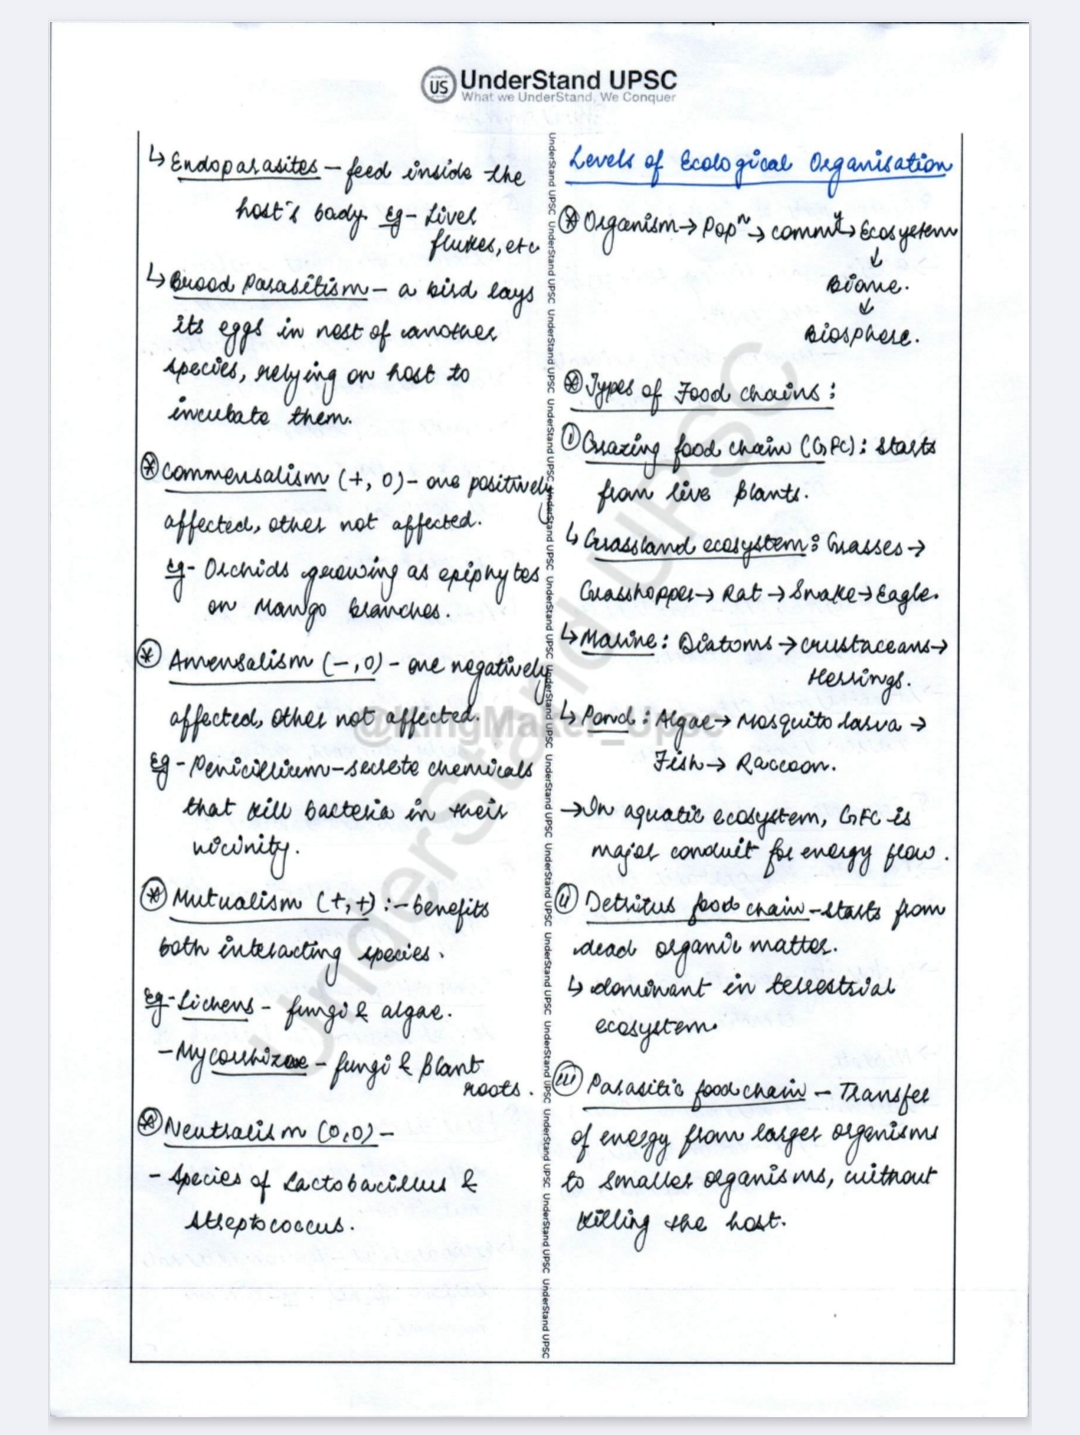 UnderStand UPSC
What we UnderStand, We Conquer
↳ Endoparasites – feed inside the
host's body. Eg – Liver
flukes, etc
↳ Brood Parasitism – a bird lays
its eggs in nest of another
species, relying on host to
incubate them.
⊛ Commensalism (+, 0) – one positively
affected, other not affected.
Eg – Orchids growing as epiphytes
on Mango branches.
⊛ Amensalism (–, 0) – one negatively
affected, other not affected.
Eg – Penicillium – secrete chemicals
that kill bacteria in their
vicinity.
⊛ Mutualism (+,+) :– benefits
both interacting species.
Eg – Lichens – fungi & algae.
– Mycorrhizae – fungi & plant
roots.
⊛ Neutralism (0,0) –
– Species of Lactobacillus &
Streptococcus.
Levels of Ecological Organisation
⊛ Organism → Popⁿ → commᵗʸ → Ecosystem
↓
Biome.
↓
Biosphere.
⊛ Types of Food chains :
i) Grazing food chain (GFC) : starts
from live plants.
↳ Grassland ecosystem : Grasses →
Grasshopper → Rat → Snake → Eagle.
↳ Marine : Diatoms → crustaceans →
Herrings.
↳ Pond : Algae → Mosquito larva →
Fish → Raccoon.
→ In aquatic ecosystem, GFC is
major conduit for energy flow.
ii) Detritus food chain – starts from
dead organic matter.
↳ dominant in terrestrial
ecosystem.
iii) Parasitic food chain – Transfer
of energy from larger organisms
to smaller organisms, without
killing the host.
UnderStand UPSC UnderStand UPSC UnderStand UPSC UnderStand UPSC UnderStand UPSC UnderStand UPSC UnderStand UPSC UnderStand UPSC UnderStand UPSC UnderStand UPSC UnderStand UPSC UnderStand UPSC UnderStand UPSC UnderStand UPSC
UnderStand UPSC
@KingMaker_Upsc